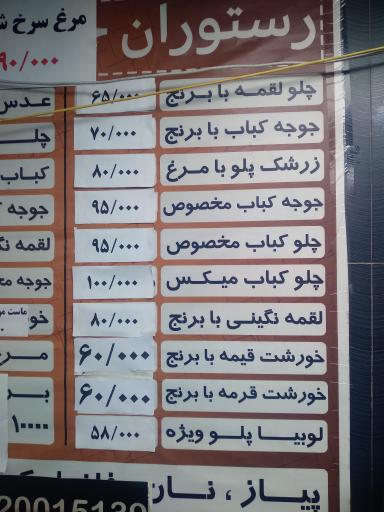 رستوران
مرغ سرخ
۹۰/۰۰۰
چلو لقمه با برنج ۶۵/۰۰۰
جوجه کباب با برنج ۷۰/۰۰۰
زرشک پلو با مرغ ۸۰/۰۰۰
جوجه کباب مخصوص ۹۵/۰۰۰
چلو کباب مخصوص ۹۵/۰۰۰
چلو کباب میکس ۱۰۰/۰۰۰
لقمه نگینی با برنج ۸۰/۰۰۰
خورشت قیمه با برنج ۶۰/۰۰۰
خورشت قرمه با برنج ۶۰/۰۰۰
لوبیا پلو ویژه ۵۸/۰۰۰
عدس
کباب
جوجه
لقمه
جوجه
ماست
پیاز ، نان
20015139